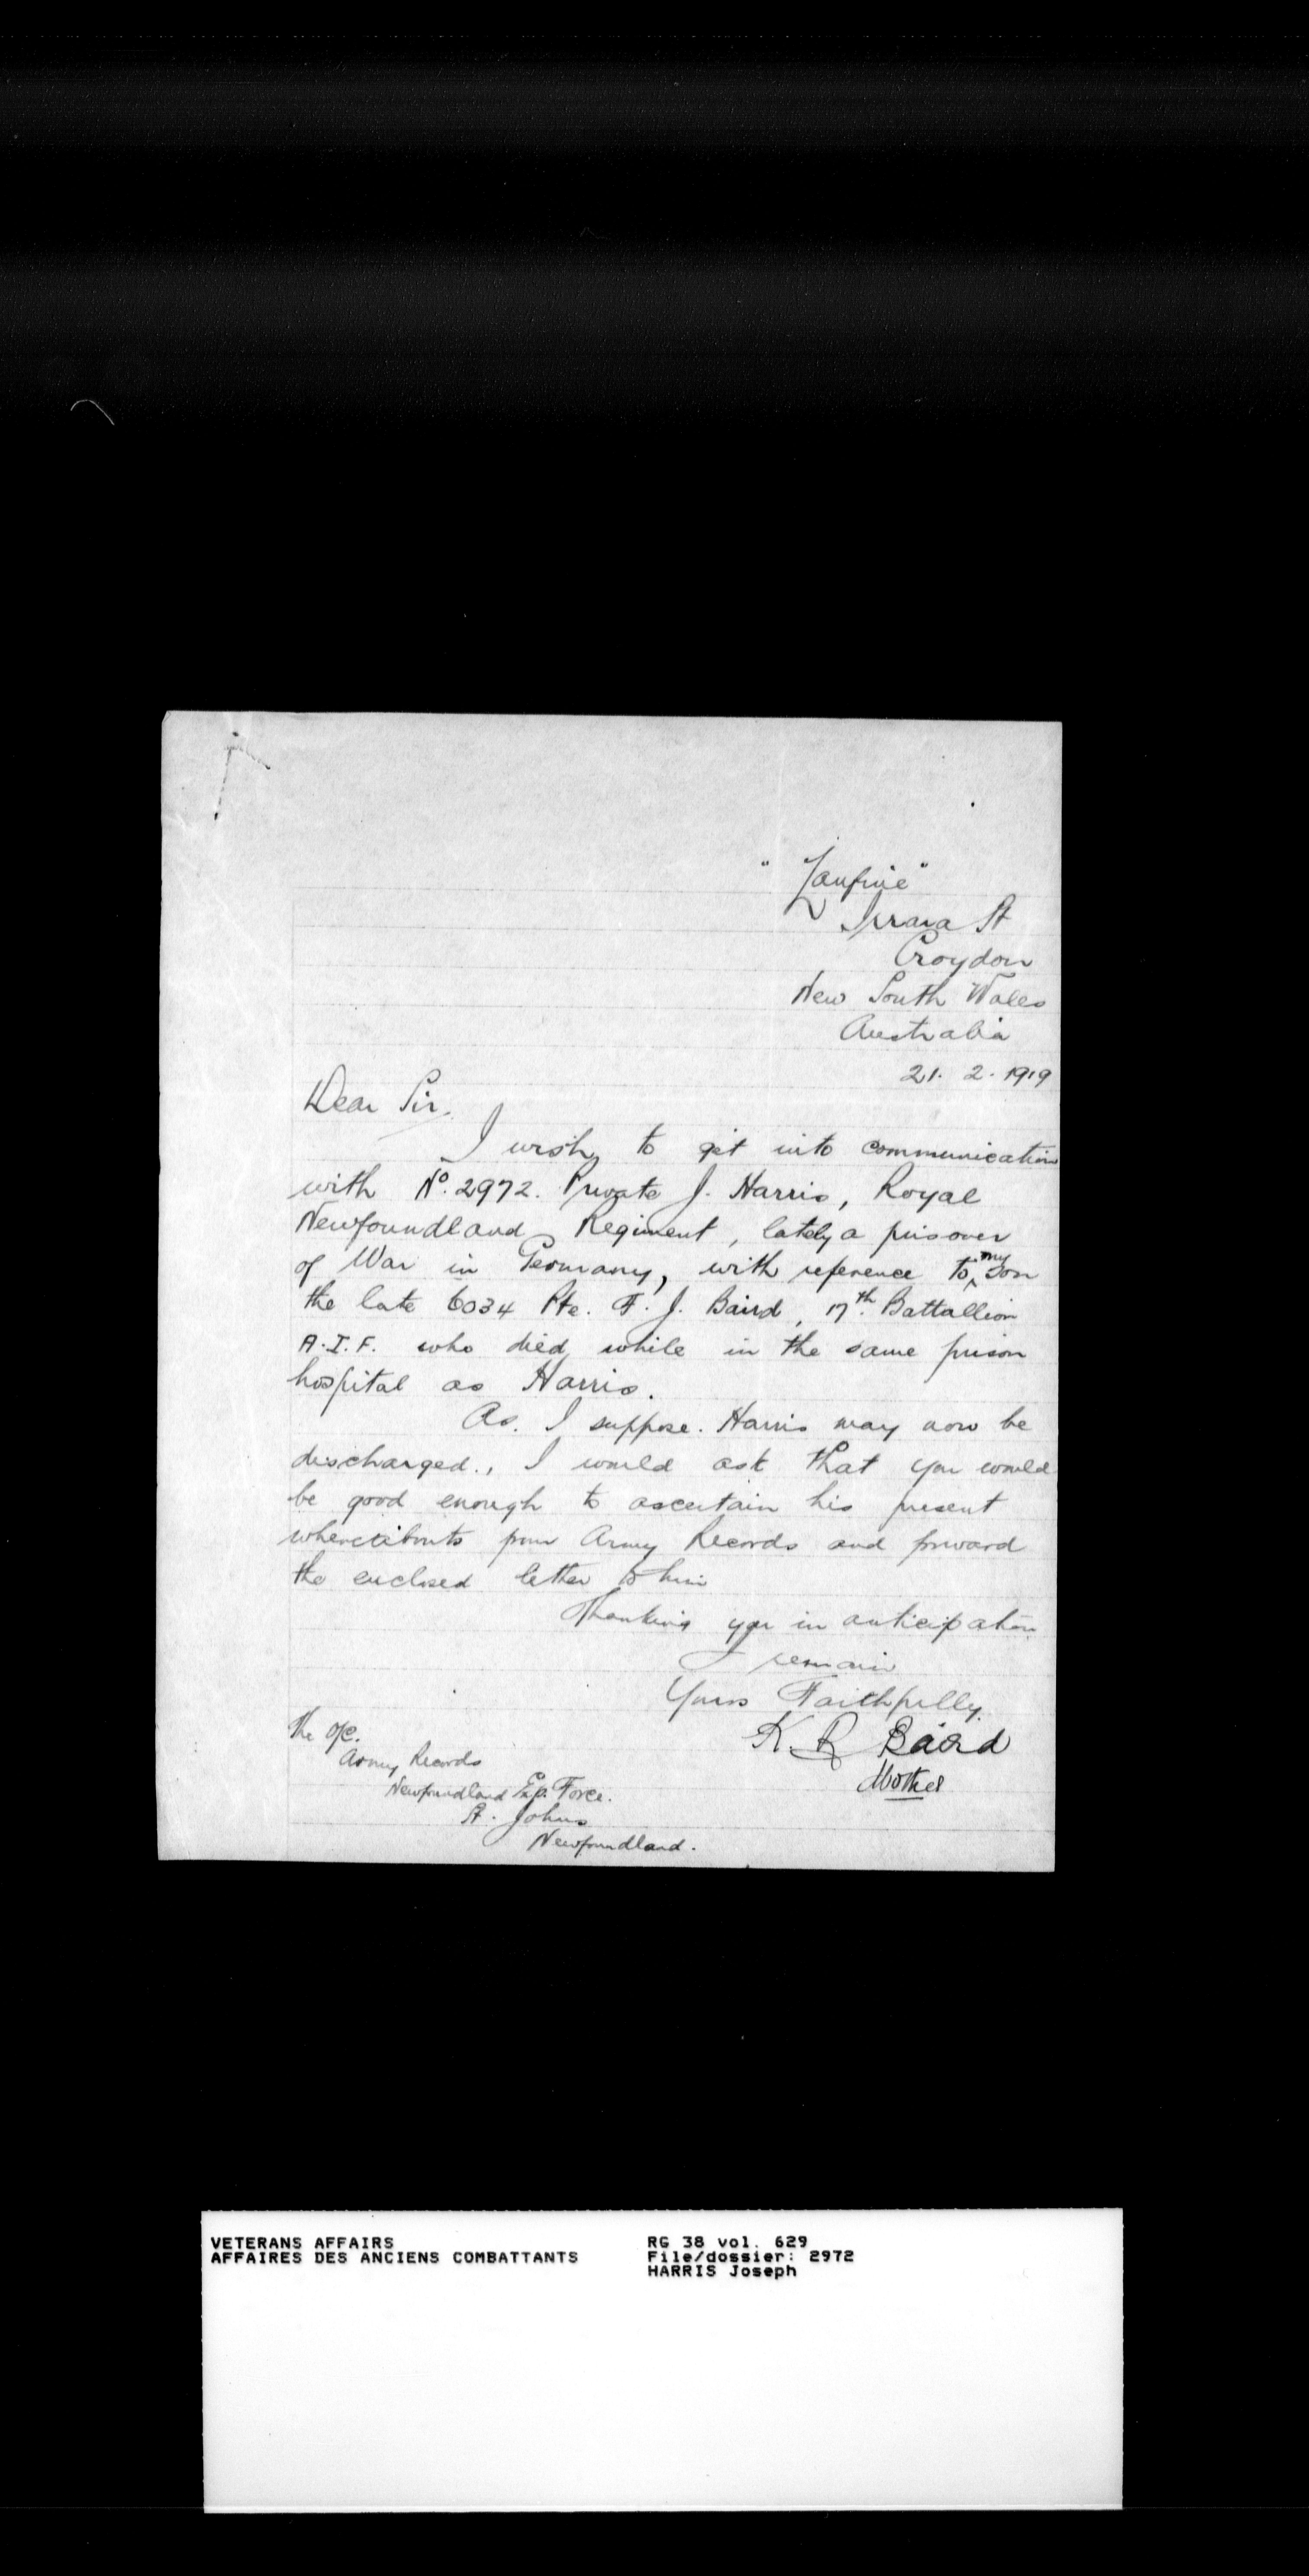 Dear Sir,
Irrara St
Croydon
New South Wales
Australia
21. 2. 1919
I wish to get into communication
with No. 2972. Private J. Harris, Royal
Newfoundland Regiment, lately a prisoner
of War in Germany, with reference to my son
the late 6034 Pte. F. J. Baird, 17th. Battallion
A.I.F. who died while in the same prison
hospital as Harris.
As. I suppose. Harris may now be
discharged., I would ask that you would
be good enough to ascertain his present
whereabouts from Army Records and forward
the enclosed letter to him
Thanking you in anticipation
I remain
Yours Faithfully.
K. R Baird
Mother
The O/C.
Army Records
Newfoundland Exp. Force.
St. Johns
Newfoundland.
VETERANS AFFAIRS
AFFAIRES DES ANCIENS COMBATTANTS
RG 38 vol. 629
File/dossier: 2972
HARRIS Joseph